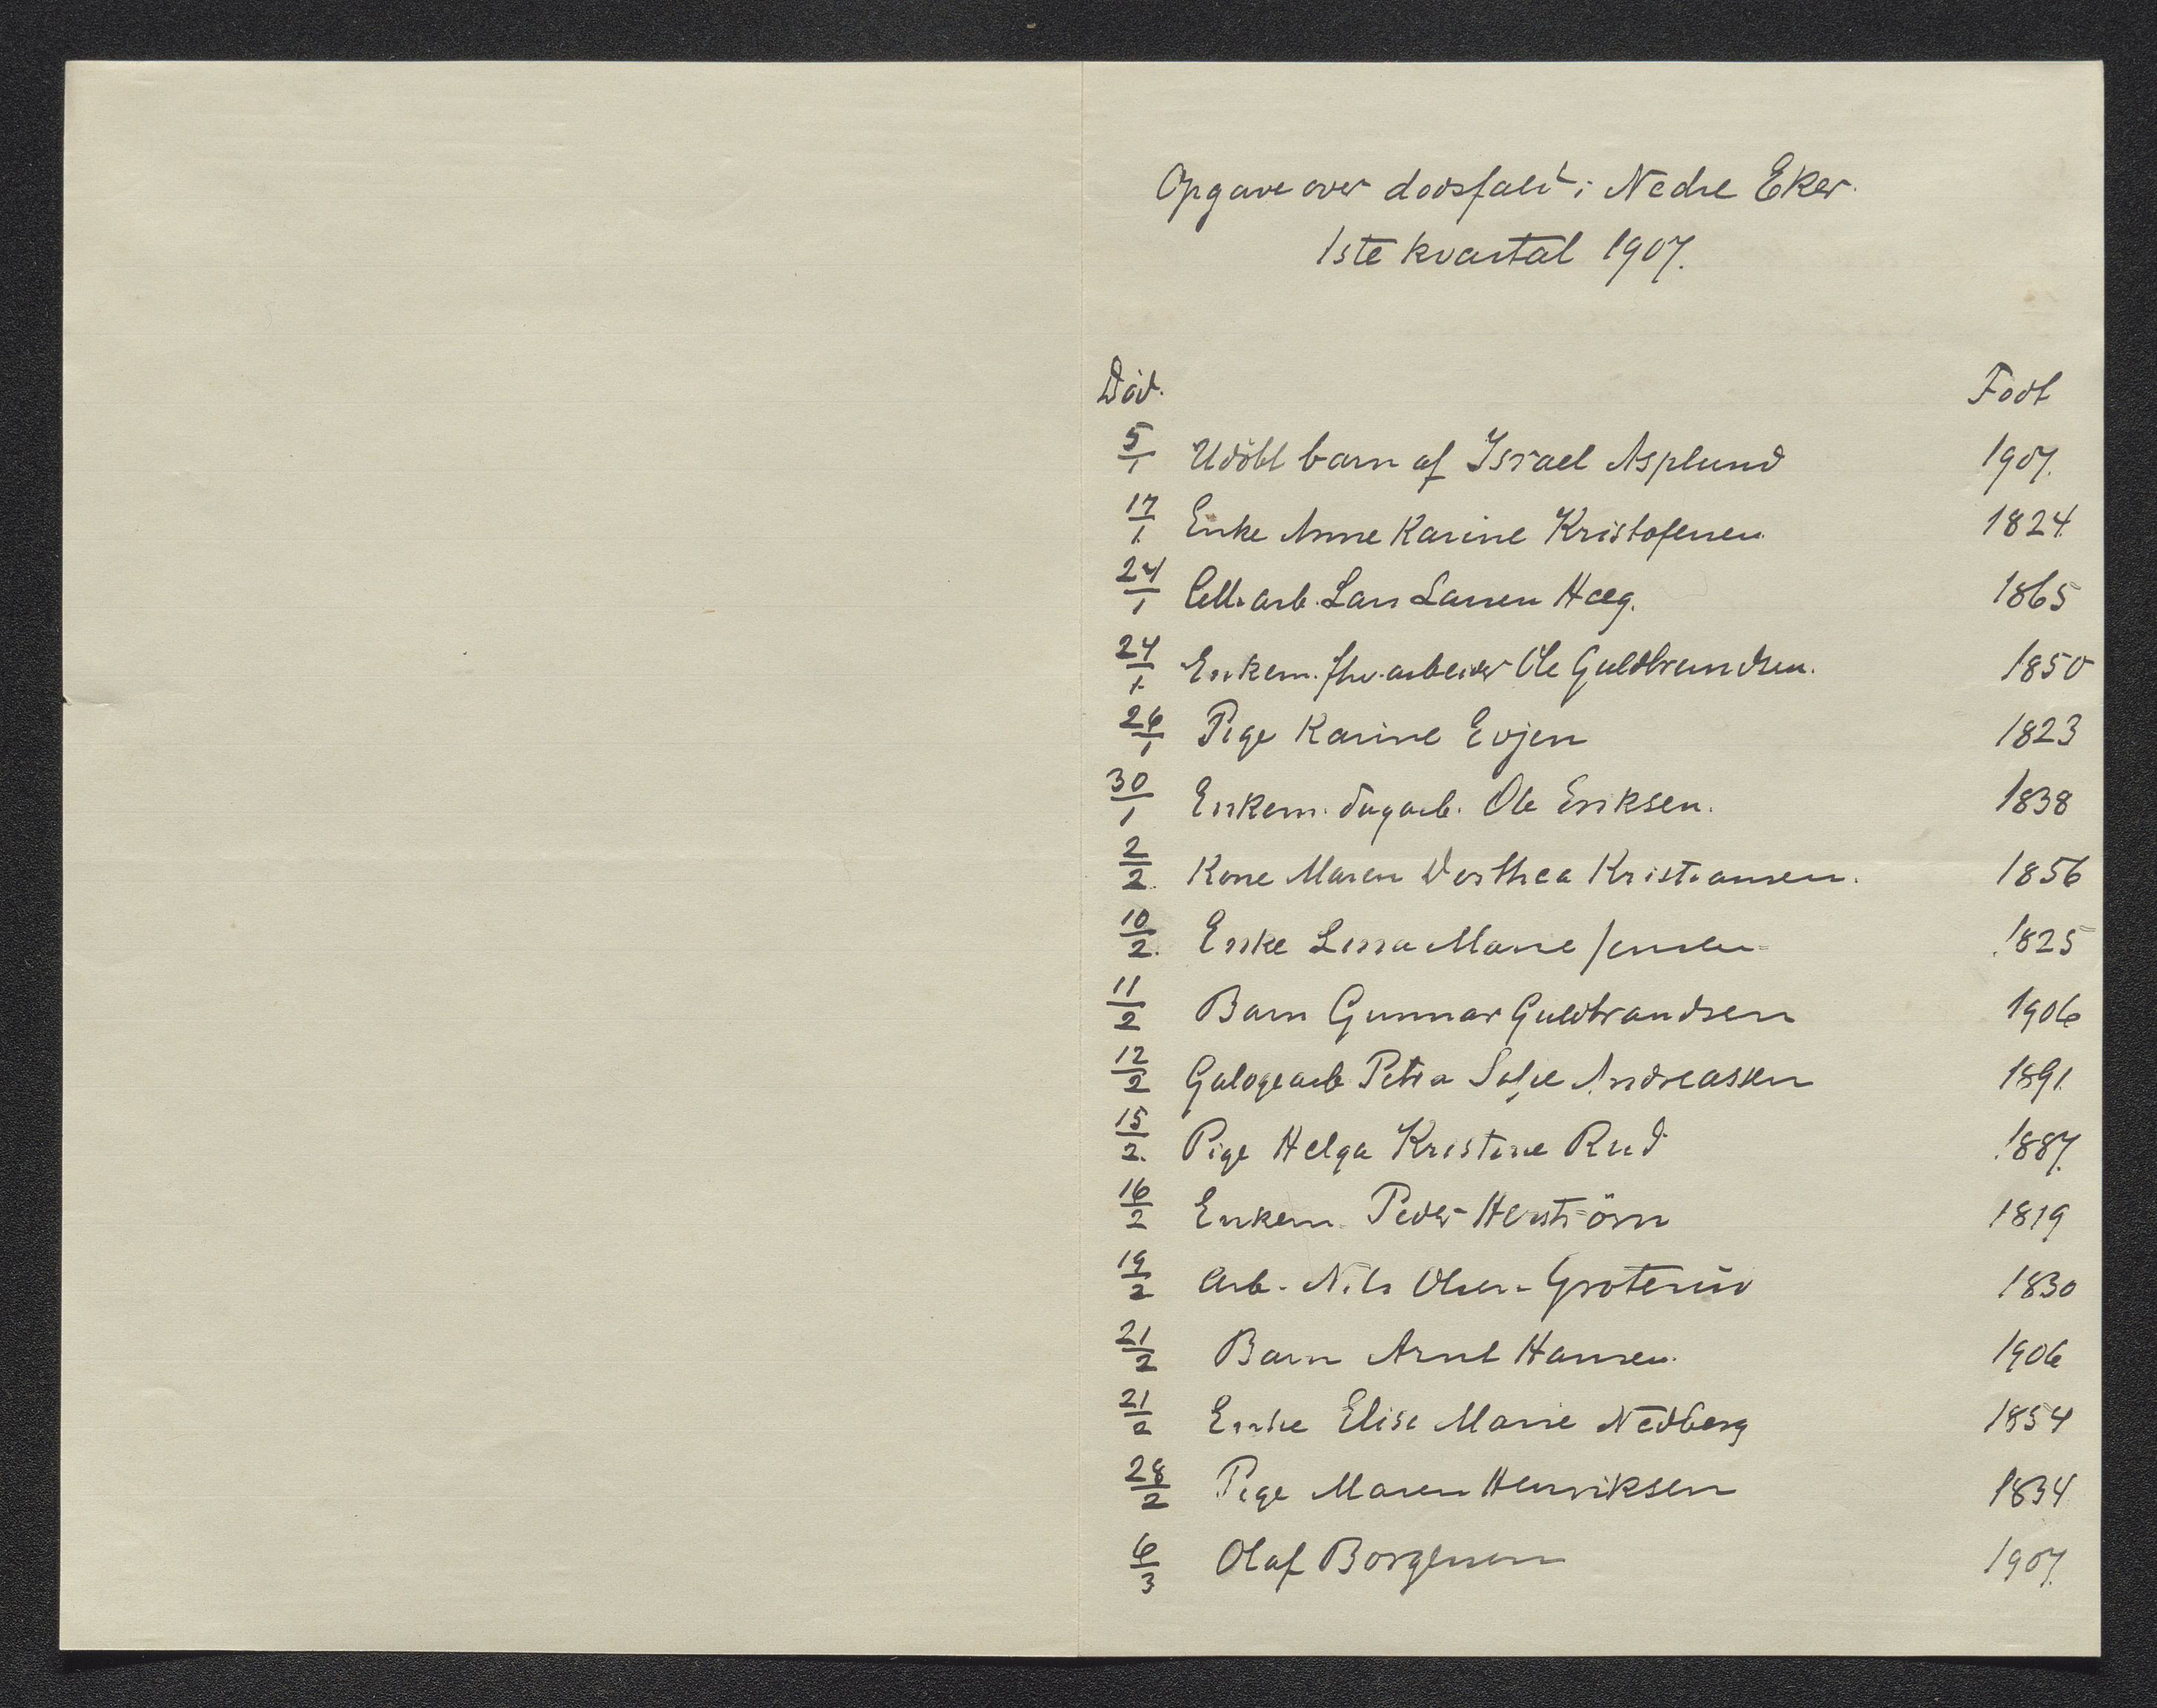 Opgave over dødsfald i Nedre Eker.
1ste kvartal 1907.
Død. Født
5/1 Udöbt barn af Israel Asplund 1907.
17/1. Enke Anne Karine Kristofersen 1824.
24/1 Cell. arb. Lars Larsen Haeg. 1865
24/1. Enkem. fhv. arbeider Ole Guldbrandsen. 1850
26/1 Pige Karine Evjen 1823
30/1 Enkem. dagarb. Ole Eriksen. 1838
2/2. Kone Maren Dorthea Kristiansen. 1856
10/2. Enke Lina Marie Jensen 1825
11/2 Barn Gunnar Guldbrandsen 1906
12/2 Galogearb Petra Sofie Andreassen 1891.
15/2. Pige Helga Kristine Rud 1887.
16/2 Enkem. Peder Herström 1819
19/2 Arb. Nils Olsen Grøterud 1830
21/2 Barn Arnt Hansen. 1906
21/2 Enke Elise Marie Nedberg 1854
28/2 Pige Maren Henriksen 1834
6/3 Olaf Borgersen 1907.